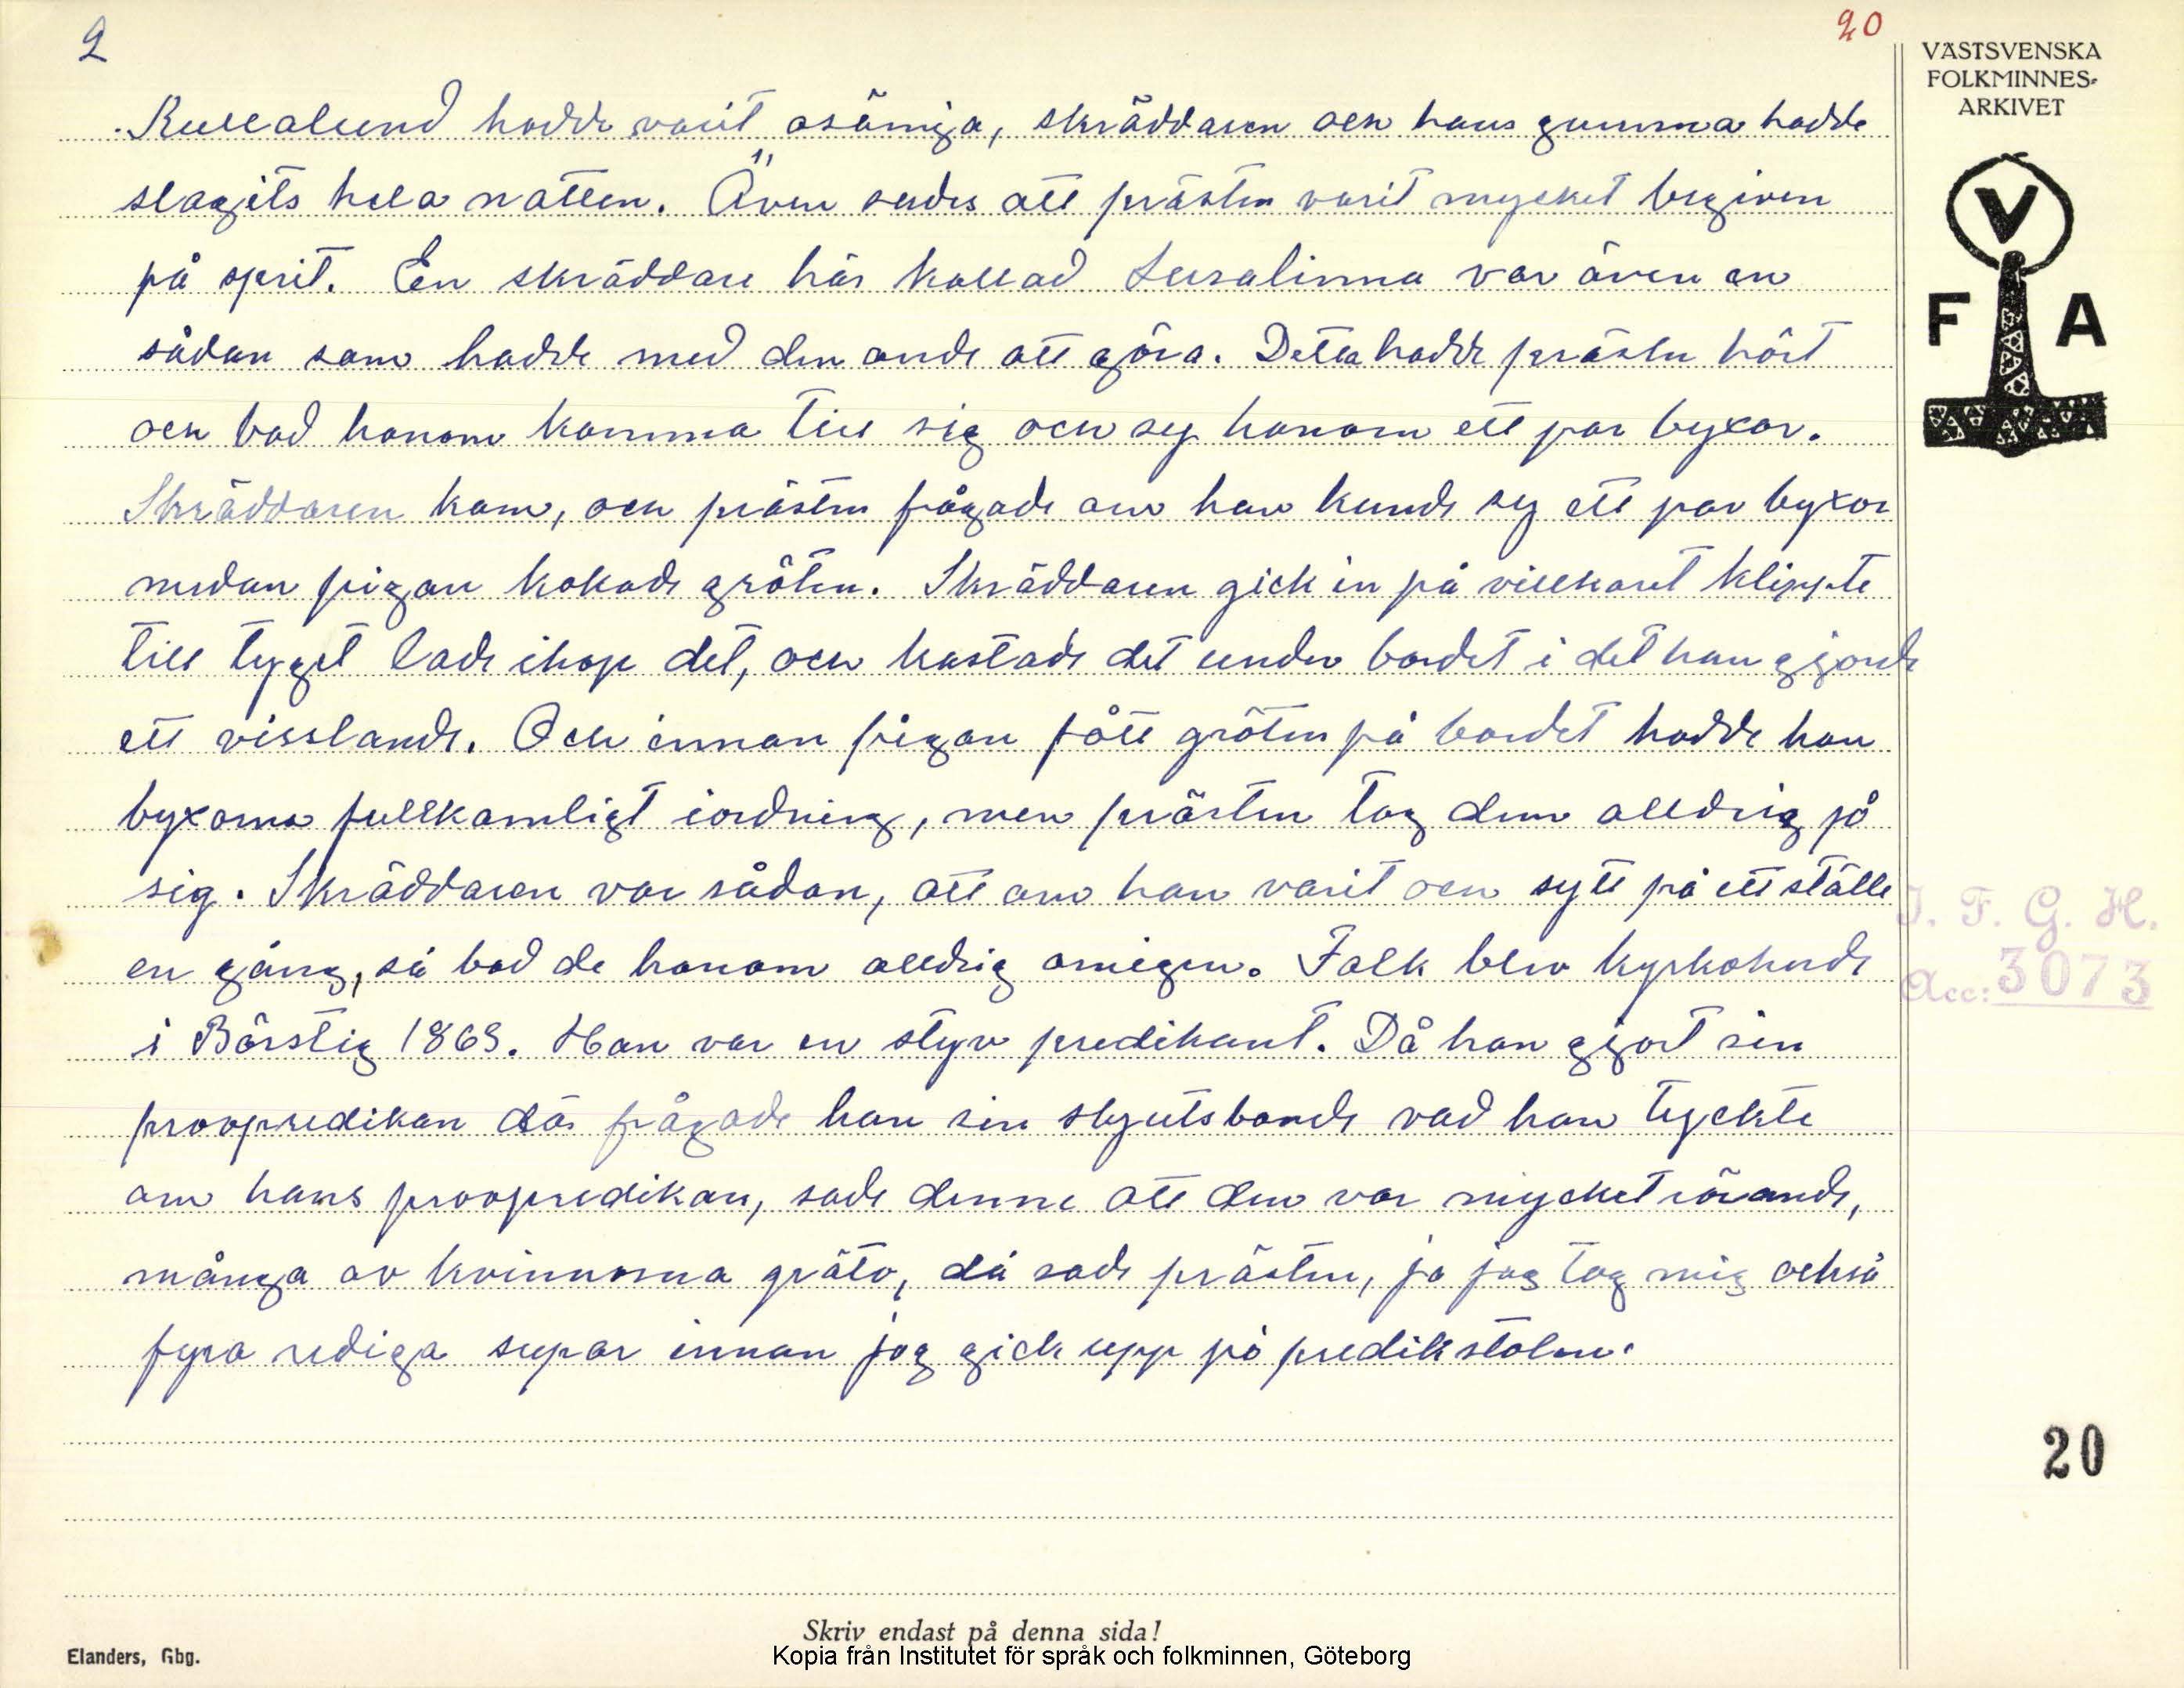 2
20
VÄSTSVENSKA
FOLKMINNES-
ARKIVET
V
F A
Kullalund hadde varit osämiga, skräddaren och hans gumma hadde
slagits hela natten. Även sades att prästen varit mycket begiven
på sprit. En skräddare här kallad Lusalinna var även en
sådan som hadde med den onde att göra. Detta hadde prästen hört
och bad honom komma till sig och sy honom ett par byxor.
Skräddaren kom, och prästen frågade om han kunde sy ett par byxor
medan pigan kokade gröten. Skräddaren gick in på villkoret klippte
till tyget lade ihop det, och kastade det under bordet i det han gjorde
ett visslande. Och innan pigan fått gröten på bordet hadde han
byxorna fullkomligt iordning, men prästen tog dem alldrig på
sig. Skräddaren var sådan, att om han varit och sytt på ett ställe
en gång, så bad de honom alldrig omigen. Falk blev kyrkoherde
i Börstig 1863. Han var en styv predikant. Då han gjort sin
provpredikan där frågade han sin skjutsbonde vad han tyckte
om hans provpredikan, sade denne att den var mycket rörande,
många av kvinnorna gräto, då sade prästen, ja jag tog mig också
fyra rediga supar innan jag gick upp på predikstolen.
I. F. G. H.
Acc: 3073
20
Skriv endast på denna sida!
Elanders, Gbg.
Kopia från Institutet för språk och folkminnen, Göteborg